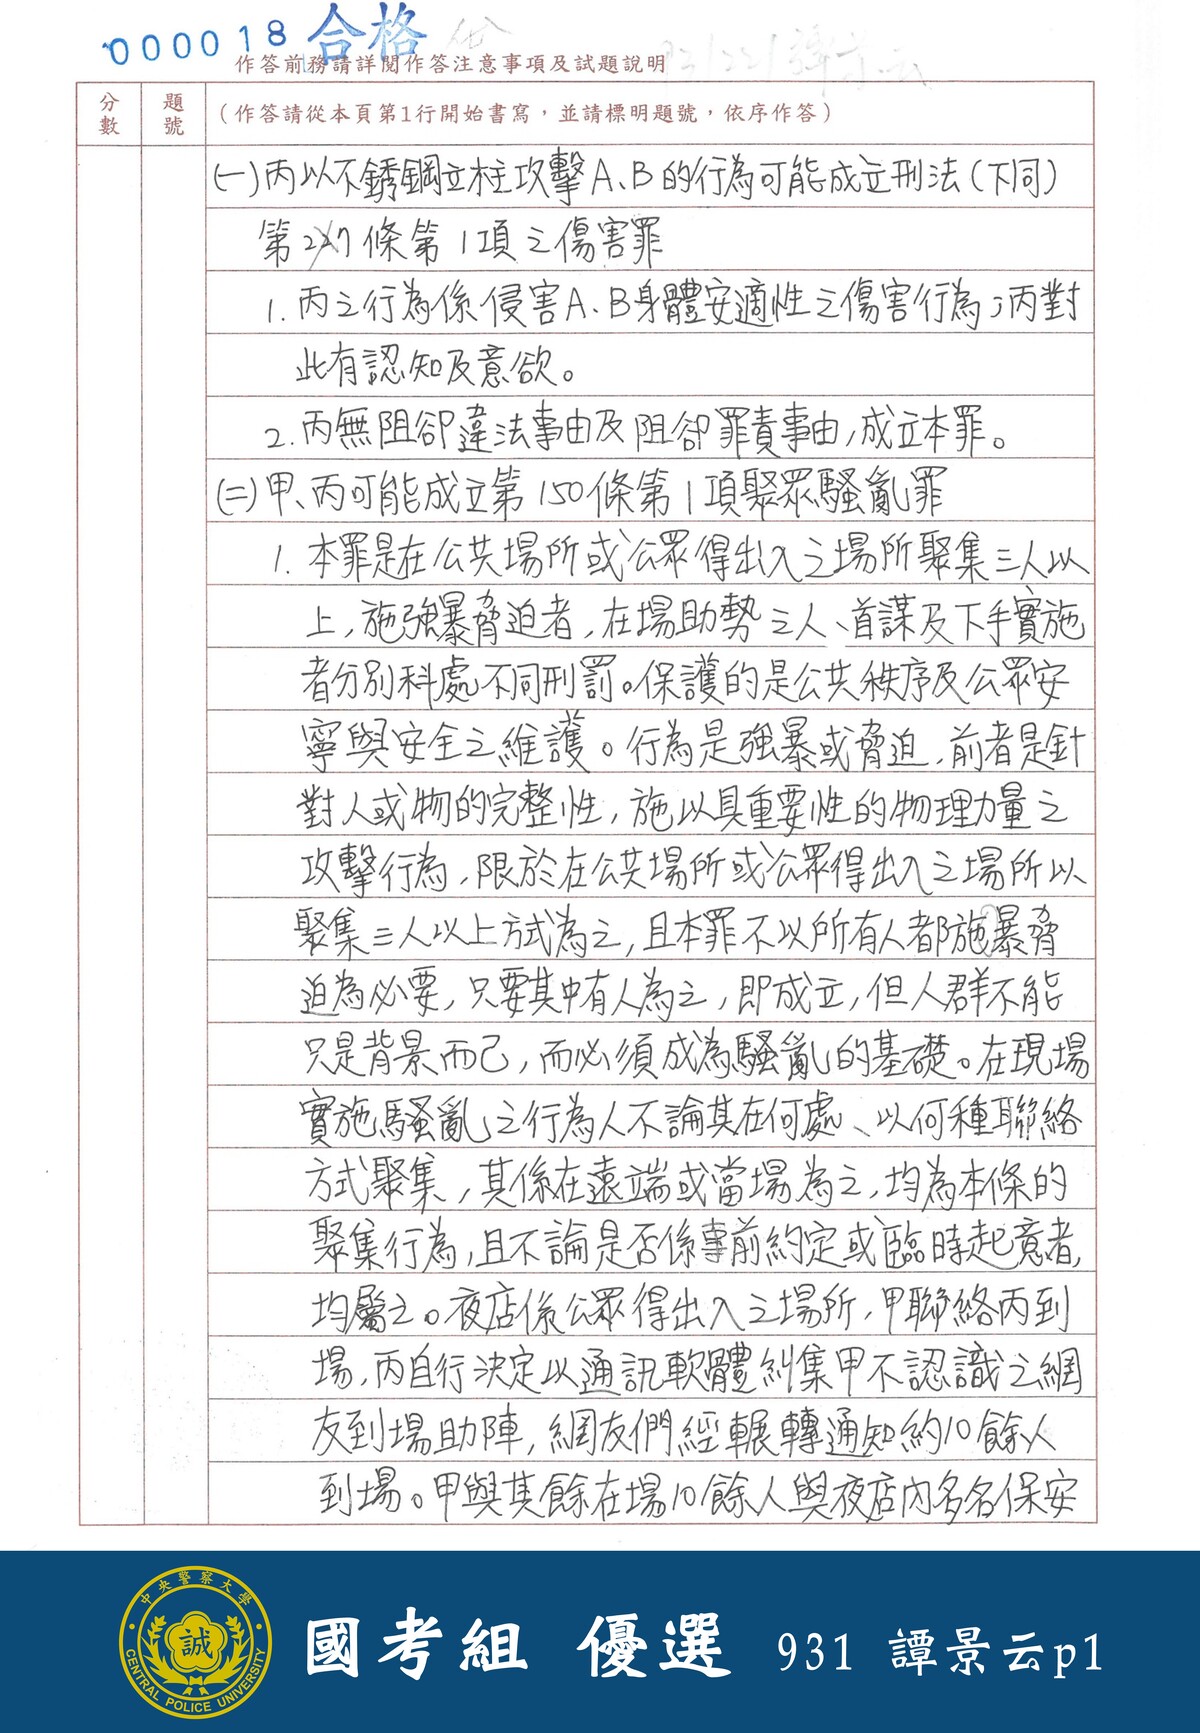 000018 合格
931 221 譚景云
作答前務請詳閱作答注意事項及試題說明
分數
題號
(作答請從本頁第1行開始書寫，並請標明題號，依序作答)
(一)丙以不銹鋼立柱攻擊A、B的行為可能成立刑法(下同)
第277條第1項之傷害罪
1. 丙之行為係侵害A、B身體安適性之傷害行為；丙對
此有認知及意欲。
2. 丙無阻卻違法事由及阻卻罪責事由，成立本罪。
(二)甲、丙可能成立第150條第1項聚眾騷亂罪
1. 本罪是在公共場所或公眾得出入之場所聚集三人以
上，施強暴脅迫者，在場助勢之人、首謀及下手實施
者分別科處不同刑罰。保護的是公共秩序及公眾安
寧與安全之維護。行為是強暴或脅迫，前者是針
對人或物的完整性，施以具重要性的物理力量之
攻擊行為，限於在公共場所或公眾得出入之場所以
聚集三人以上方式為之，且本罪不以所有人都施暴脅
迫為必要，只要其中有人為之，即成立，但人群不能
只是背景而已，而必須成為騷亂的基礎。在現場
實施騷亂之行為人不論其在何處、以何種聯絡
方式聚集，其係在遠端或當場為之，均為本條的
聚集行為，且不論是否係事前約定或臨時起意者，
均屬之。夜店係公眾得出入之場所，甲聯絡丙到
場，丙自行決定以通訊軟體糾集甲不認識之網
友到場助陣，網友們經輾轉通知約10餘人
到場。甲與其餘在場10餘人與夜店內多名保安
中央警察大學
誠
CENTRAL POLICE UNIVERSITY
國考組 優選 931 譚景云p1